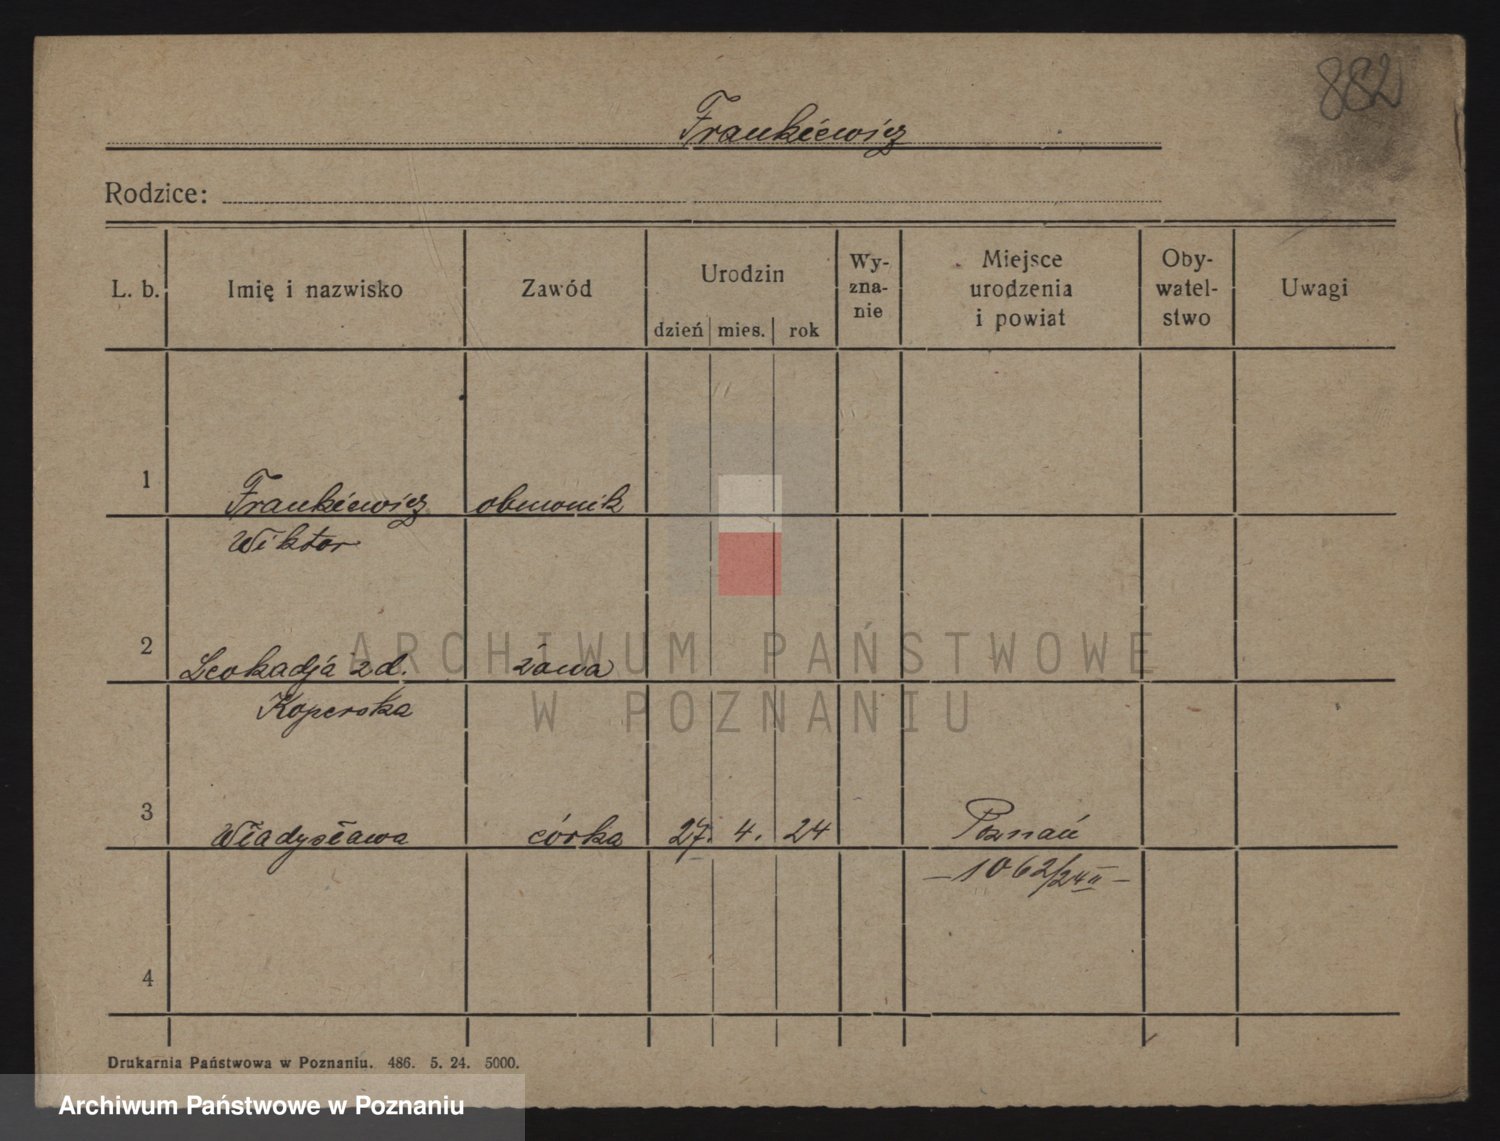 882
Frankiewicz
Rodzice:
L. b. Imię i nazwisko Zawód Urodzin dzień mies. rok Wy-znanie Miejsce urodzenia i powiat Oby-watel-stwo Uwagi
1 Frankiewicz obuwnik
Wiktor
2 Leokadja z d. żona
Koperska
3 Władysława córka 27. 4. 24 Poznań
— 1062/24 II —
4
Drukarnia Państwowa w Poznaniu. 486. 5. 24. 5000.
ARCHIWUM PAŃSTWOWE
W POZNANIU
Archiwum Państwowe w Poznaniu